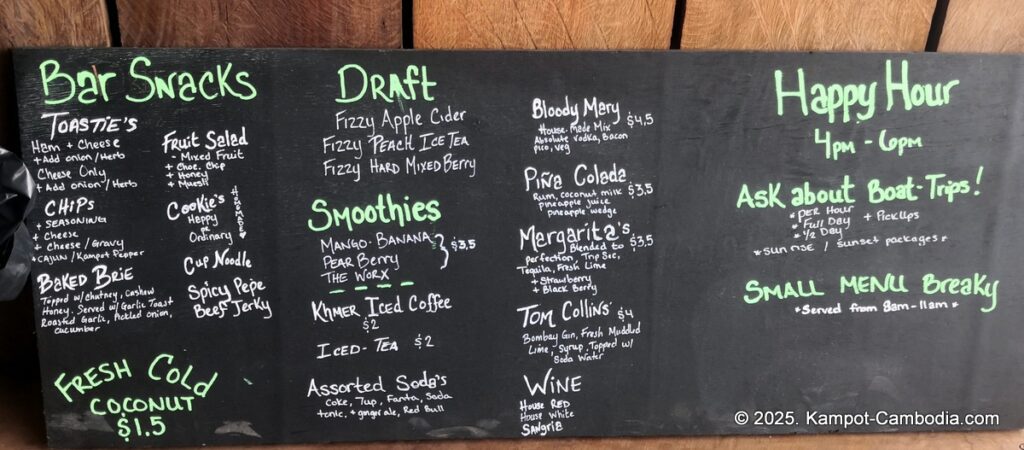 Bar Snacks
TOASTIE'S
Ham + Cheese
+ Add onion/Herb
Cheese Only
+ Add onion/Herb
CHIPS
+ SEASONING
+ Cheese
+ Cheese/Gravy
+ Cajun/Kampot Pepper
BAKED BRIE
Topped w/Chutney, Cashew
Honey. Served w/Garlic Toast
Roasted Garlic, Pickled Onion,
Cucumber
Fruit Salad
- Mixed Fruit
+ Choc. Chip
+ Honey
+ Muesli
Cookie's
Happy
or
Ordinary
HOMEMADE
Cup Noodle
Spicy Pepe
Beef Jerky
FRESH COLD
COCONUT
$1.5
DRAFT
Fizzy Apple Cider
Fizzy PEACH ICE TEA
Fizzy HARD MIXED BERRY
Smoothies
MANGO-BANANA
PEAR Berry
THE WORX
$3.5
KHMER ICED COFFEE
$2
ICED-TEA $2
Assorted Soda's
Coke, 7up, Fanta, Soda
tonic, + gingerale, Red Bull
Bloody Mary $4.5
House-Made Mix
Absolute vodka, Bacon
pico, veg
Piña Colada $3.5
Rum, coconut milk
pineapple juice
pineapple wedge
Margarita's $3.5
Blended to
perfection, Trip Sec,
Tequila, Fresh Lime
+ Strawberry
+ Black Berry
TOM COLLINS' $4
Bombay Gin, Fresh Muddled
Lime, Syrup, Topped w/
Soda Water
WINE
House RED
House White
SANGRIA
Happy Hour
4pm - 6pm
ASK about BOAT-TRIPS!
* PER Hour
* Full Day
* 1/2 Day
+ Pick Ups
* sun rise / sunset packages *
SMALL MENU Breaky
*Served from 8am-11am *
© 2025. Kampot-Cambodia.com